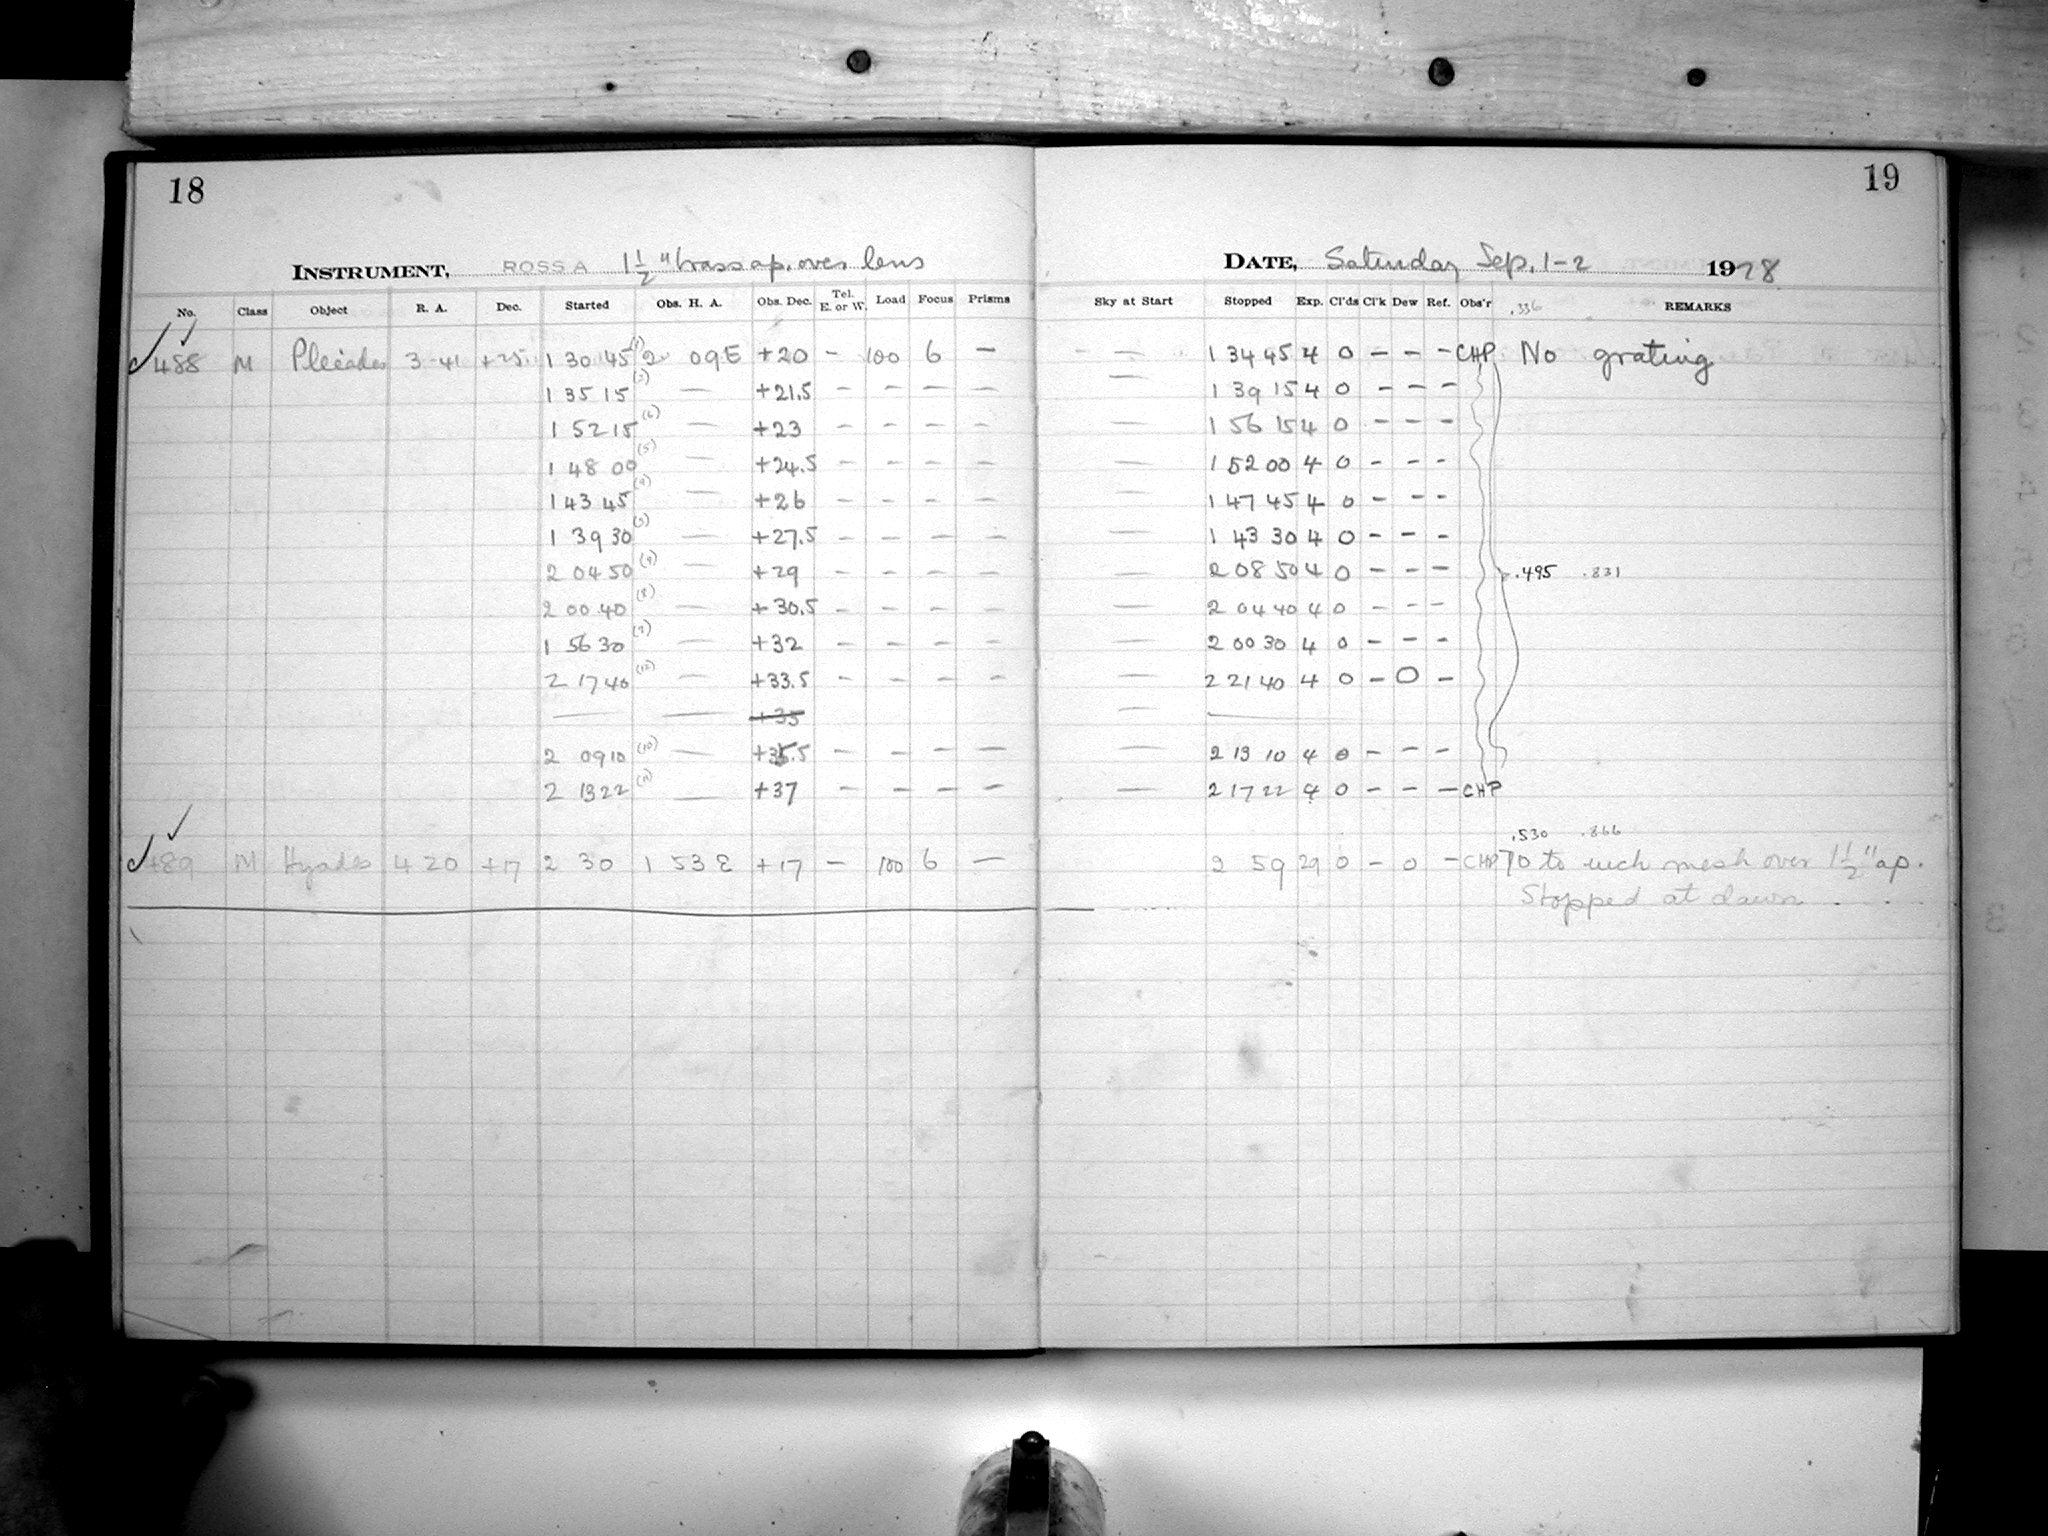 18
19
INSTRUMENT, ROSS A 1 1/2" brass ap. over lens
DATE, Saturday Sep. 1-2 1928
No. Class Object R. A. Dec. Started Obs. H. A. Obs. Dec. Tel. E. or W. Load Focus Prisms Sky at Start Stopped Exp. Cl'ds Cl'k Dew Ref. Obs'r .336 REMARKS
488 M Pleiades 3-41 +25 1 30 45 (1) 2 09E +20 - 100 6 - - — 1 34 45 4 0 - - - CHP No grating
1 35 15 (2) — +21.5 - - - - — 1 39 15 4 0 - - -
1 52 15 (6) — +23 - - - - — 1 56 15 4 0 - - -
1 48 00 (5) — +24.5 - - - - — 1 52 00 4 0 - - -
1 43 45 (4) — +26 - - - - — 1 47 45 4 0 - - -
1 39 30 (3) — +27.5 - - - - — 1 43 30 4 0 - - -
2 04 50 (9) — +29 - - - - — 2 08 50 4 0 - - - .495 .831
2 00 40 (8) — +30.5 - - - - — 2 04 40 4 0 - - -
1 56 30 (7) — +32 - - - - — 2 00 30 4 0 - - -
2 17 40 (12) — +33.5 - - - - — 2 21 40 4 0 - 0 -
— — +35 — —
2 09 10 (10) — +35.5 - - - - — 2 13 10 4 0 - - -
2 13 22 (11) — +37 - - - - — 2 17 22 4 0 - - - CHP
.530 .866
489 M Hyades 4 20 +17 2 30 1 53 E +17 - 100 6 - 2 59 29 0 - 0 - CHP 70 to inch mesh over 1 1/2" ap.
Stopped at dawn